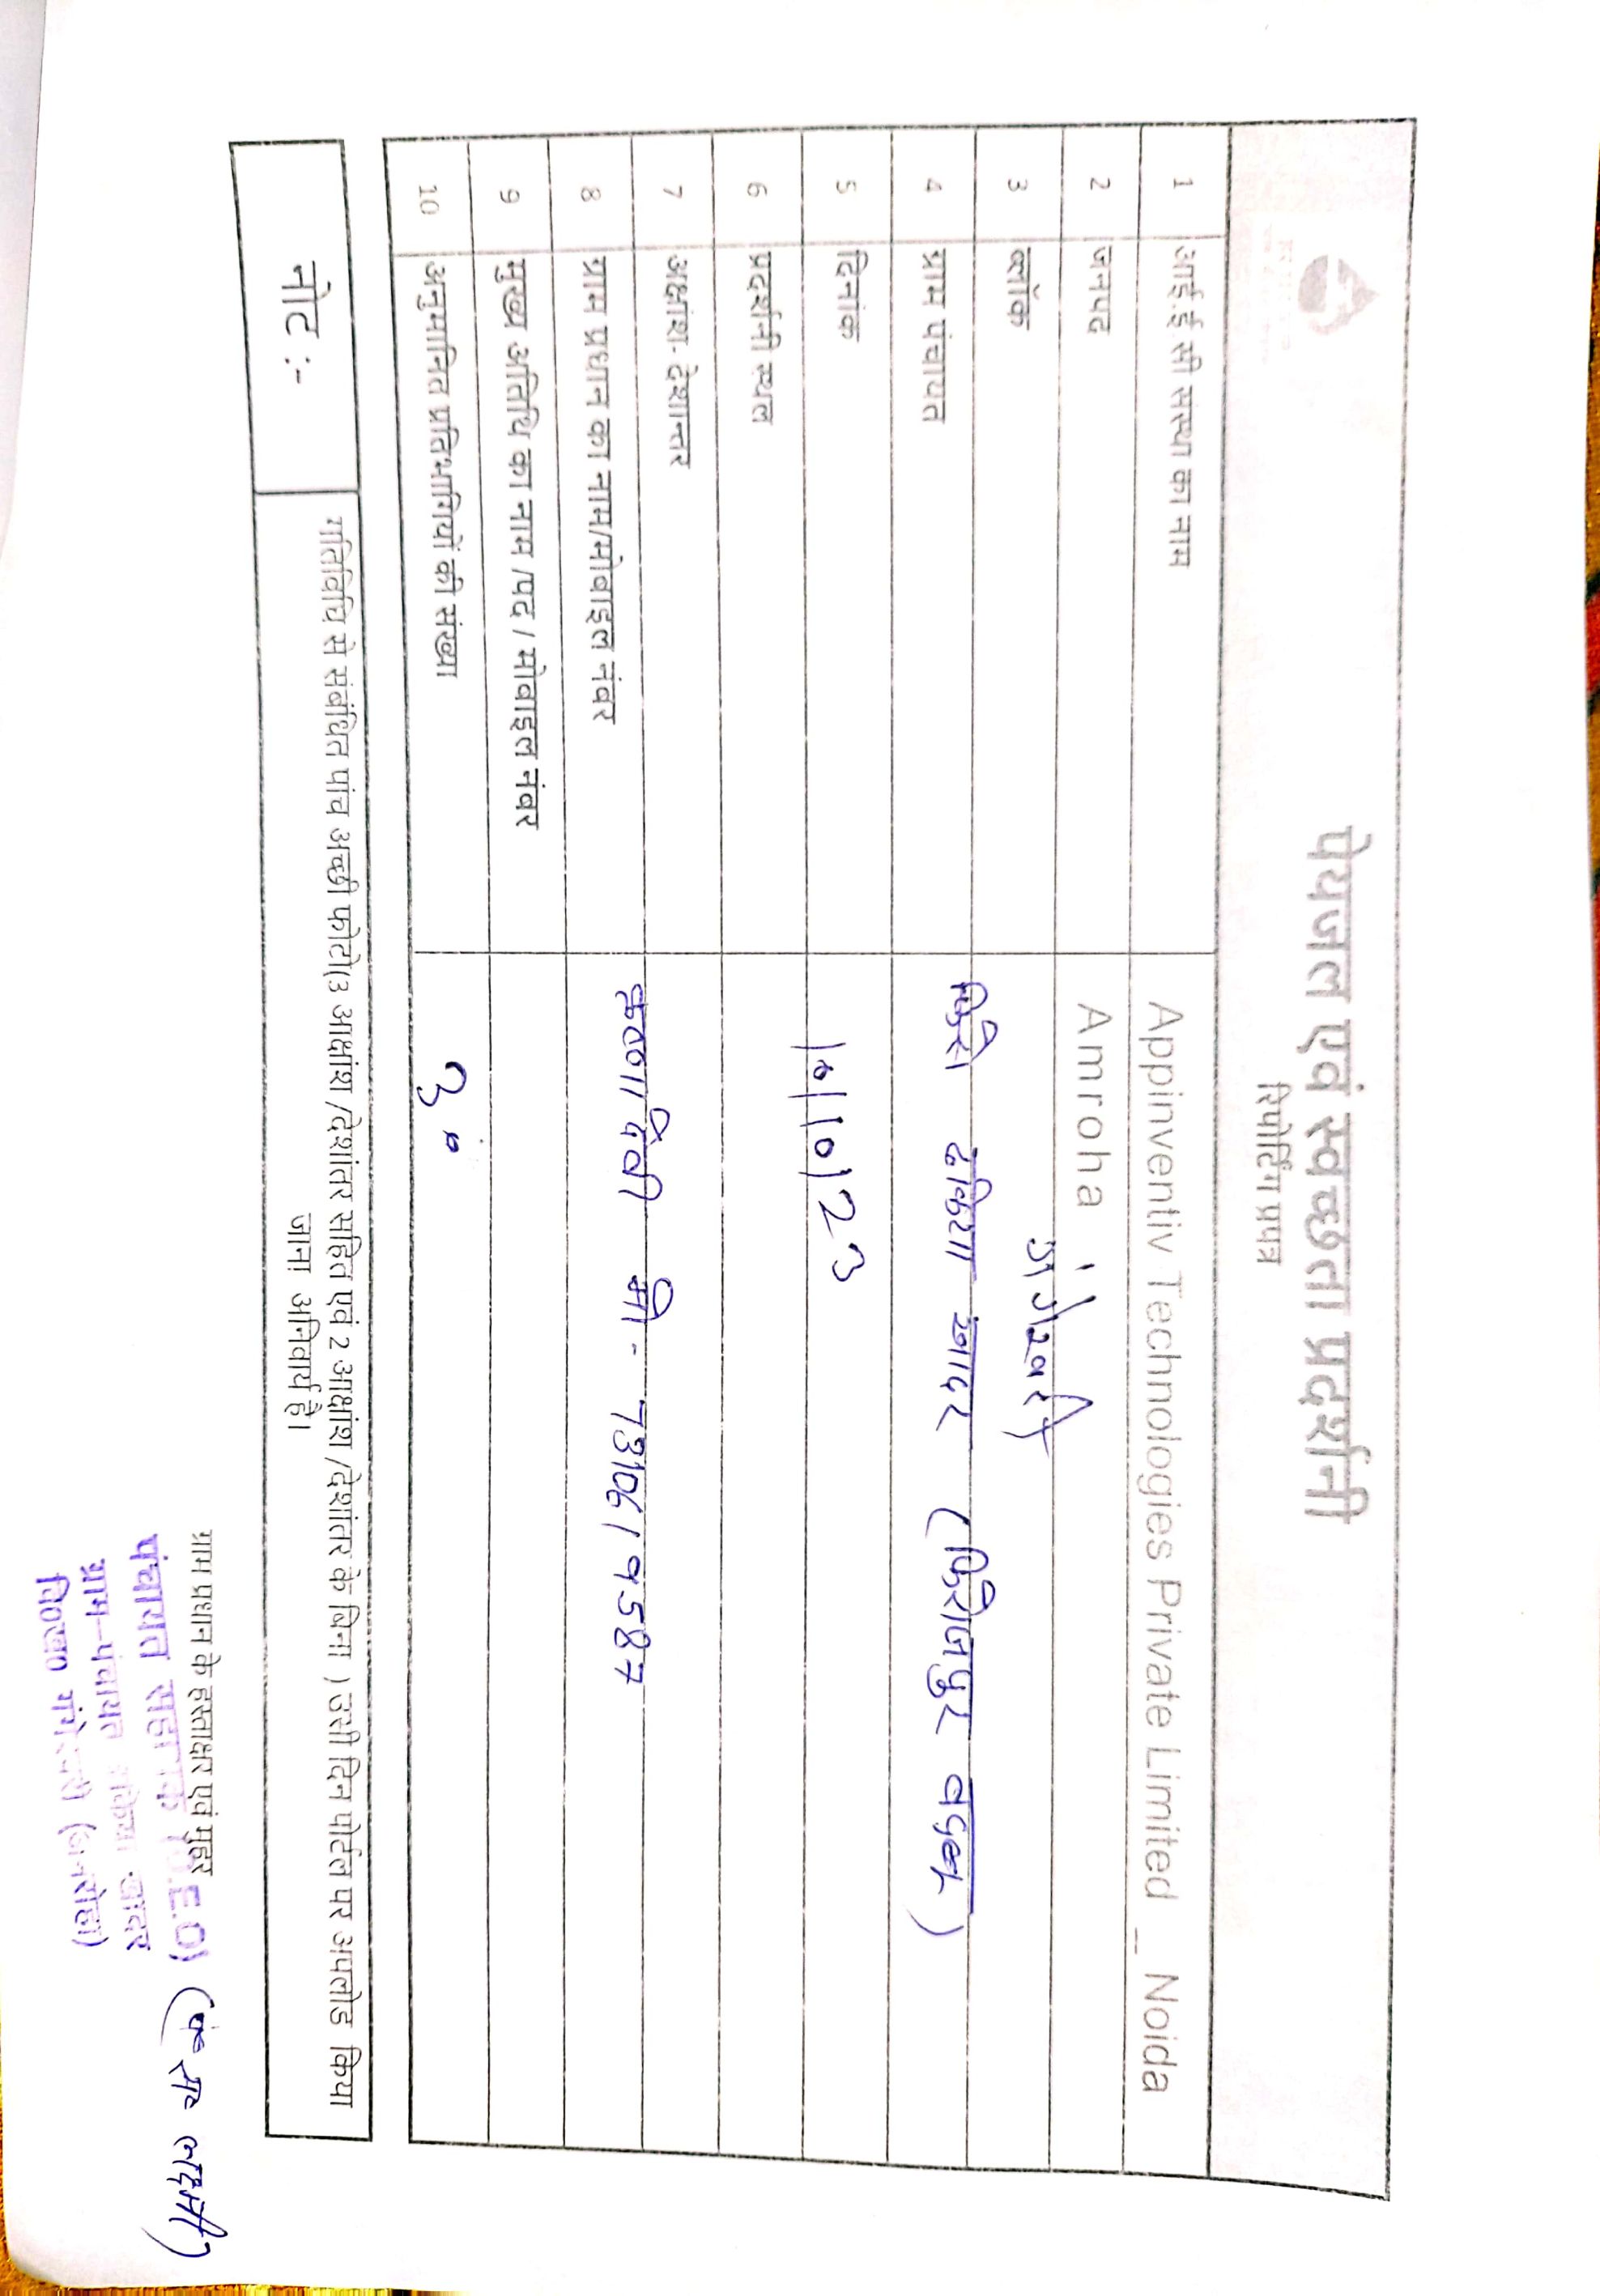 पेयजल एवं स्वच्छता प्रदर्शनी
रिपोर्टिंग प्रपत्र
1 आई.ई.सी संस्था का नाम Appinventiv Technologies Private Limited _ Noida
2 जनपद Amroha
3 ब्लॉक गंगेश्वरी
4 ग्राम पंचायत ढकिया खादर (फिरोजपुर
5 दिनांक 10/10/23
6 प्रदर्शनी स्थल
7 अक्षांश- देशान्तर
8 ग्राम प्रधान का नाम/मोबाइल नंबर देवी मो - 7310619587
9 मुख्य अतिथि का नाम /पद / मोबाइल नंबर
10 अनुमानित प्रतिभागियों की संख्या 30
नोट :- गतिविधि से संबंधित पांच अच्छी फोटो(3 आक्षांश /देशांतर सहित एवं 2 आक्षांश /देशांतर के बिना ) उसी दिन पोर्टल पर अपलोड किया
जाना अनिवार्य है।
ग्राम प्रधान के हस्ताक्षर एवं मुहर
पंचायत सहायक (D.E.O)
ग्राम-पंचायत ढकिया खादर
वि०ख० गंगेश्वरी (अमरोहा)